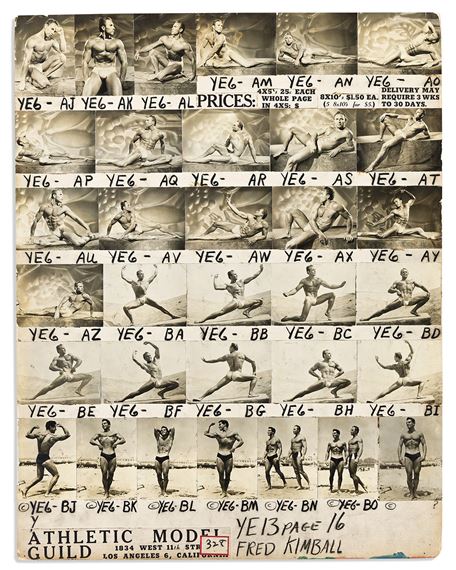 YE6-AJ YE6-AK YE6-AL PRICES: 4X5's, 25¢ EACH WHOLE PAGE IN 4X5: $ YE6-AM YE6-AN YE6-AO
8X10's, $1.50 EA. (5 8x10s for $5) DELIVERY MAY REQUIRE 2 WKS TO 30 DAYS.
YE6-AP YE6-AQ YE6-AR YE6-AS YE6-AT
YE6-AU YE6-AV YE6-AW YE6-AX YE6-AY
YE6-AZ YE6-BA YE6-BB YE6-BC YE6-BD
YE6-BE YE6-BF YE6-BG YE6-BH YE6-BI
©YE6-BJ ©YE6-BK ©YE6-BL ©YE6-BM ©YE6-BN ©YE6-BO ©
Y
ATHLETIC MODEL
GUILD
1834 WEST 11th
LOS ANGELES 6, CALIFORNIA
328
YE13 PAGE 16
FRED KIMBALL